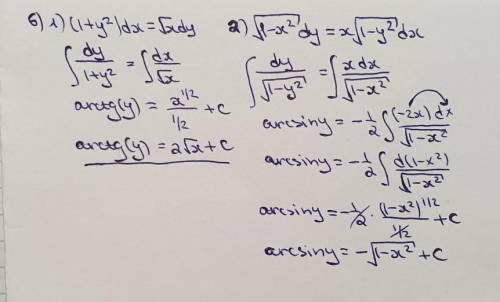 6) 1) (1+y²)dx=√x dy
∫ dy/(1+y²) = ∫ dx/√x
arctg(y) = x^(1/2)/(1/2) + C
arctg(y) = 2√x + C
2) √(1-x²) dy = x√(1-y²) dx
∫ dy/√(1-y²) = ∫ x dx/√(1-x²)
arcsiny = -1/2 ∫ (-2x) dx/√(1-x²)
arcsiny = -1/2 ∫ d(1-x²)/√(1-x²)
arcsiny = -1/2 · (1-x²)^(1/2)/(1/2) + C
arcsiny = -√(1-x²) + C